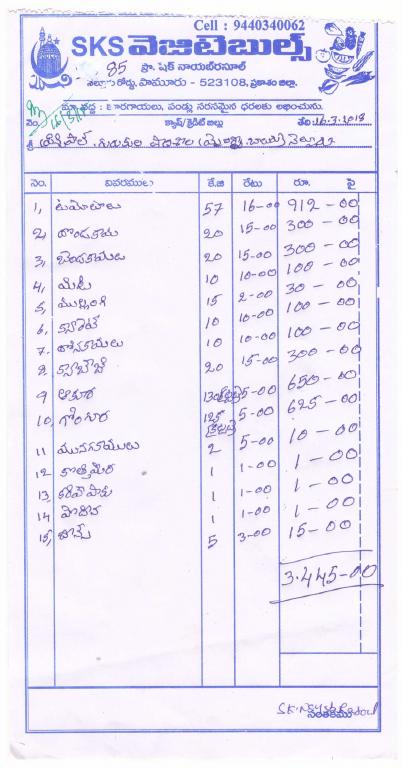 Cell : 9440340062
SKS వెజిటెబుల్స్
85 ప్రొ. షేక్ నాయబ్‌రసూల్
నెల్లూరు రోడ్డు, పామూరు - 523108, ప్రకాశం జిల్లా.
మా వద్ద : కూరగాయలు, పండ్లు సరసమైన ధరలకు లభించును.
నెం. క్యాష్/క్రెడిట్ బిల్లు తేది 16.3.2018
శ్రీ ప్రిన్సిపాల్. గురుకుల పాఠశాల
నెం. వివరములు కే.జి రేటు రూ. పై
1, టమోటాలు 57 16-00 912-00
2, దొండకాయ 20 15-00 300-00
3, బెండకాయలు 20 15-00 300-00
4, 10 10-00 100-00
5, ముల్లంగి 15 2-00 30-00
6, క్యారెట్ 10 10-00 100-00
7. దోసకాయలు 10 10-00 100-00
8. క్యాబేజి 20 15-00 300-00
9 ఆకుకూర 130 5-00 650-00
10, గోంగూర 125 5-00 625-00
11 మునగకాయలు 2 5-00 10-00
12 కొత్తిమీర 1 1-00 1-00
13, కరివేపాకు 1 1-00 1-00
14 పొదీన 1 1-00 1-00
15, 5 3-00 15-00
3.445-00
సంతకము